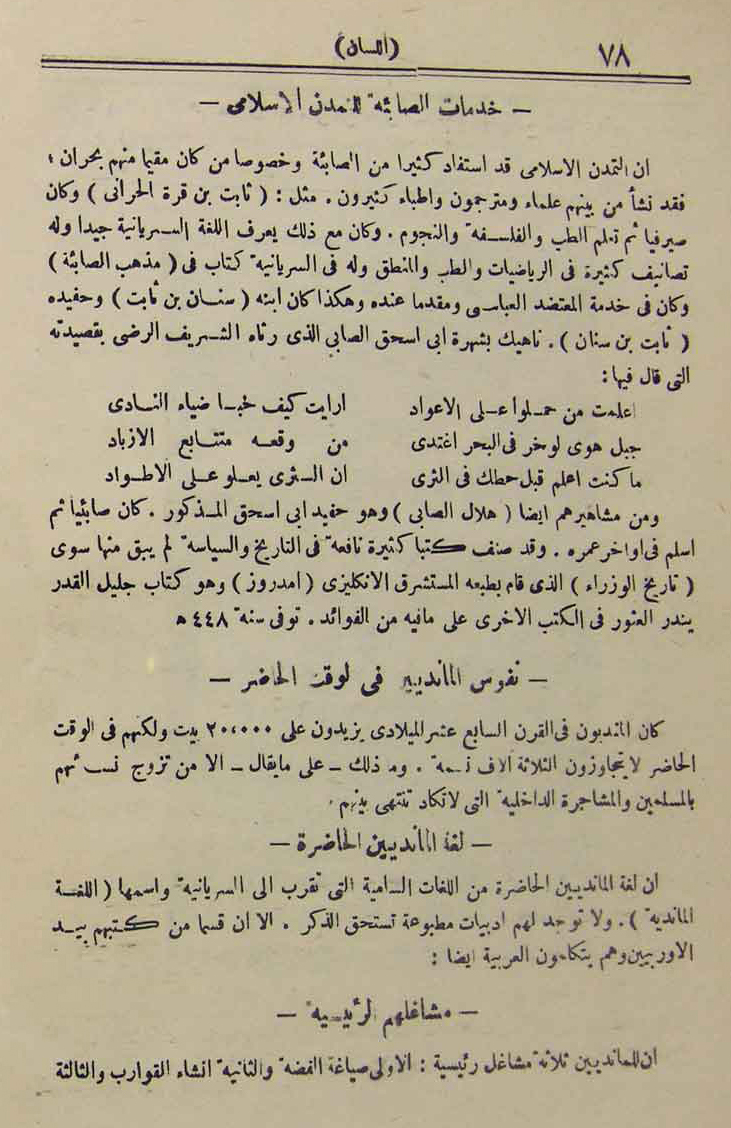 ٧٨ (اللسان)
— خدمات الصابئة للتمدن الاسلامى —
ان التمدن الاسلامى قد استفاد كثيرا من الصابئة وخصوصا من كان مقيما منهم بحران ؛
فقد نشأ من بينهم علماء ومترجمون واطباء كثيرون . مثل : ( ثابت بن قرة الحرانى ) وكان
صيرفيا ثم تعلم الطب والفلسفة والنجوم . وكان مع ذلك يعرف اللغة السريانية جيدا وله
تصانيف كثيرة فى الرياضيات والطب والمنطق وله فى السريانية كتاب فى ( مذهب الصابئة )
وكان فى خدمة المعتضد العباسى ومقدما عنده وهكذا كان ابنه ( سنان بن ثابت ) وحفيده
( ثابت بن سنان ) . ناهيك بشهرة ابى اسحق الصابى الذى رثاه الشريف الرضى بقصيدته
التى قال فيها :
اعلمت من حملوا على الاعواد ارايت كيف خبا ضياء النادى
جبل هوى لو خر فى البحر اغتدى من وقعه متتابع الازباد
ما كنت اعلم قبل حطك فى الثرى ان الثرى يعلو على الاطواد
ومن مشاهيرهم ايضا ( هلال الصابى ) وهو حفيد ابى اسحق المذكور . كان صابئيا ثم
اسلم فى اواخر عمره . وقد صنف كتبا كثيرة نافعة فى التاريخ والسياسة لم يبق منها سوى
( تاريخ الوزراء ) الذى قام بطبعه المستشرق الانكليزى ( امدروز ) وهو كتاب جليل القدر
يندر العثور فى الكتب الاخرى على مافيه من الفوائد . توفى سنة ٤٤٨ ه
— نفوس المانديين فى لوقت الحاضر —
كان المنديون فى القرن السابع عشر الميلادى يزيدون على ٢٠،٠٠٠ بيت ولكنهم فى الوقت
الحاضر لا يتجاوزون الثلاثة آلاف نسمة . وما ذلك ـ على مايقال ـ الا من تزوج نسائهم
بالمسلمين والمشاجرة الداخلية التى لاتكاد تنتهى بينهم .
— لغة المانديين الحاضرة —
ان لغة المانديين الحاضرة من اللغات السامية التى تقرب الى السريانية واسمها ( اللغة
الماندية ) . ولا توجد لهم ادبيات مطبوعة تستحق الذكر . الا ان قسما من كتبهم بيد
الاوربيين وهم يتكلمون العربية ايضا :
— مشاغلهم الرئيسية —
ان للمانديين ثلاثة مشاغل رئيسية : الاولى صياغة الفضة والثانية انشاء القوارب والثالثة